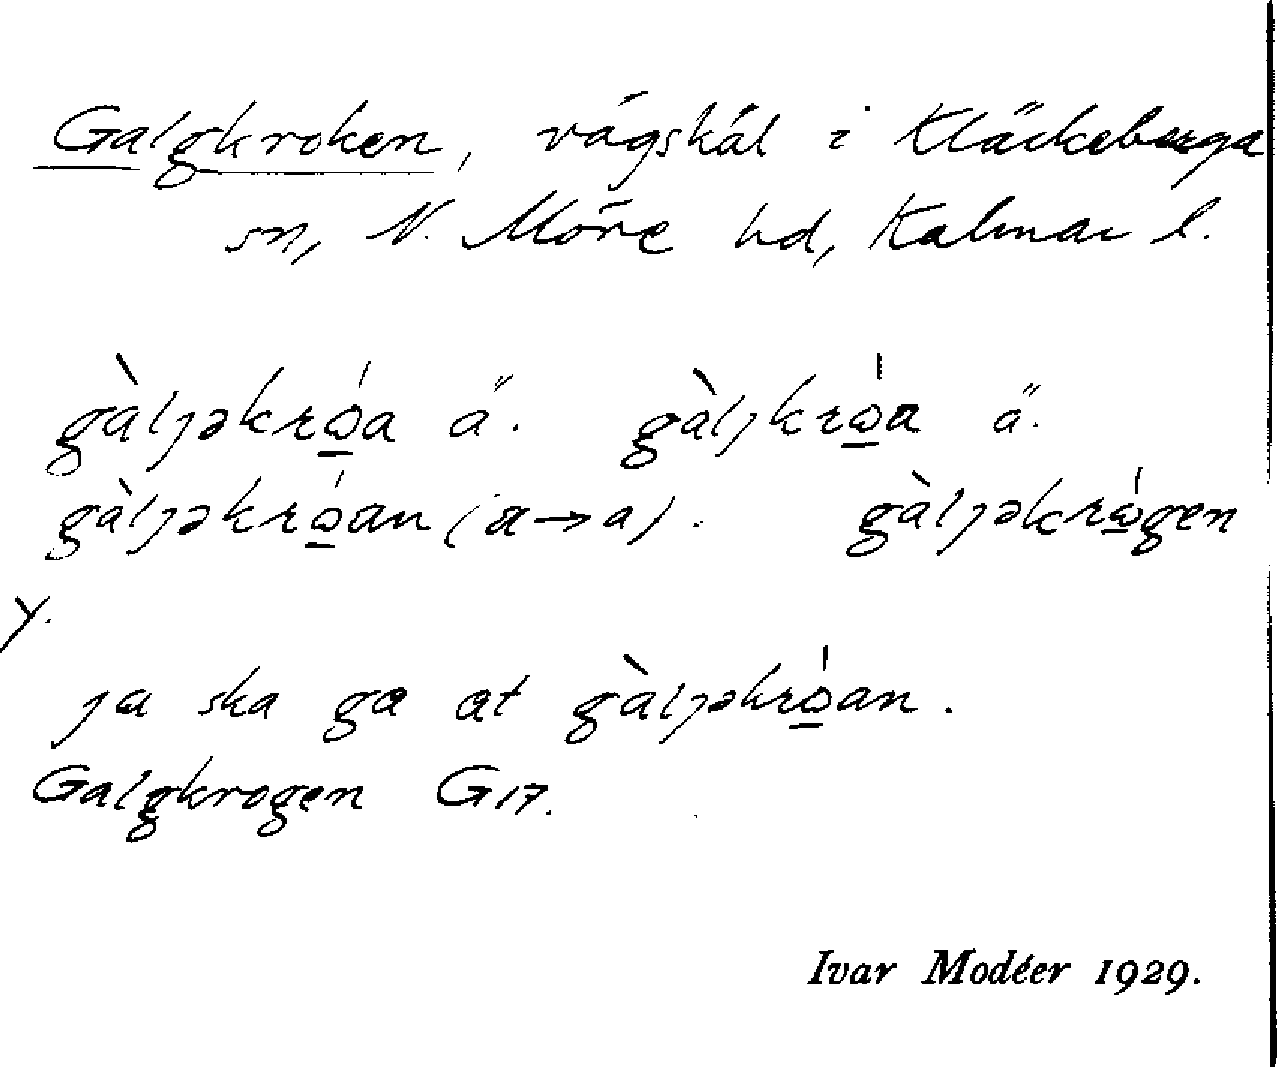 Galgkroken, vägskäl i Kläckeberga
sn, N. Möre hd, Kalmar l.
gàljəkrώ̲a ä. gàljkrώ̲a ä.
gàljəkrώ̲an (a→a). gàljəkrώ̲gen
y.
ja ska ga at gàljəkrώ̲an.
Galgkrogen G17.
Ivar Modéer 1929.